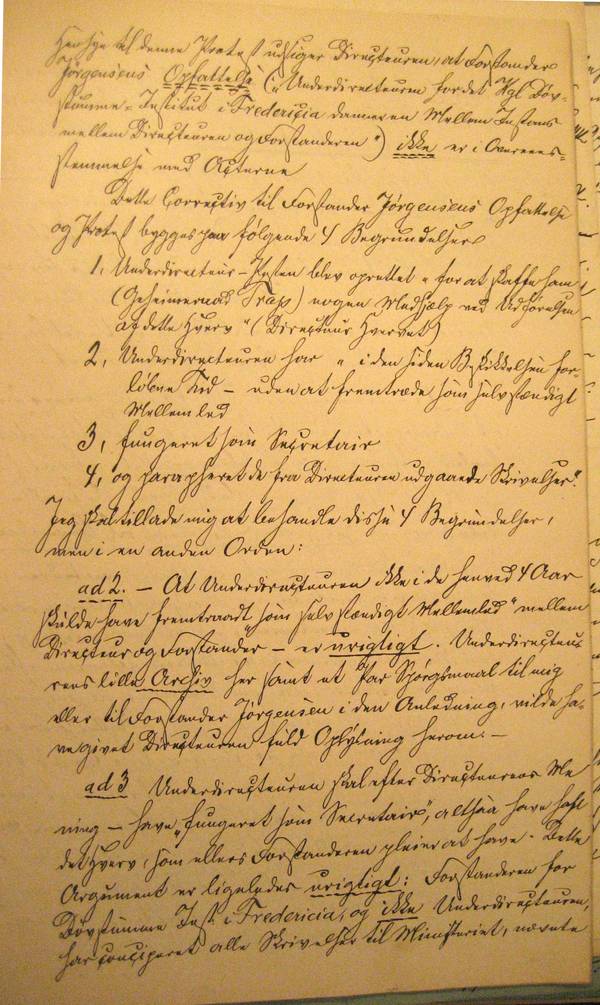 Hensyn til denne Protest udsiger Directeuren, at Forstander
Jørgensens Opfattelse ("Underdirecteuren for det Kgl Døv-
stumme-Institut i Fredericia danner en Mellem Instans
mellem Directeuren og Forstanderen") ikke er i Overeens-
stemmelse med Acterne
Dette Correctiv til Forstander Jørgensens Opfattelse
og Protest bygges paa følgende 4 Begrundelser
1, Underdirecteur-Posten blev oprettet "for at skaffe ham
(Geheimeraad Trap) nogen Medhjælp ved Udførelsen
af dette Hverv" (Directeur Hvervet)
2, Underdirecteuren har "i den siden Beskikkelsen for-
løbne Tid - uden at fremtræde som selvstændigt
Mellemled
3, fungeret som Secretair
4, og parapheret de fra Directeuren udgaaede Skrivelser".
Jeg skal tillade mig at behandle disse 4 Begrundelser,
men i en anden Orden:
ad 2. - At Underdirecteuren ikke i de henved 4 Aar
skulde have fremtraadt "som selvstændigt Mellemled" mellem
Directeur og Forstander - er urigtigt. Underdirecteu-
rens lille Archiv her samt et Par Spørgsmaal til mig
eller til Forstander Jørgensen i den Anledning, vilde ha-
ve givet Directeuren fuld Oplysning herom. -
ad 3 Underdirecteuren skal efter Directeurens Me
ning - have "fungeret som Secretair", altsaa have havt
det Hverv, som ellers Forstanderen pleier at have. Dette
Argument er ligeledes urigtigt: Forstanderen for
Døvstumme Inst. i Fredericia, og ikke Underdirecteuren,
har conciperet alle Skrivelser til Ministeriet, nævnte